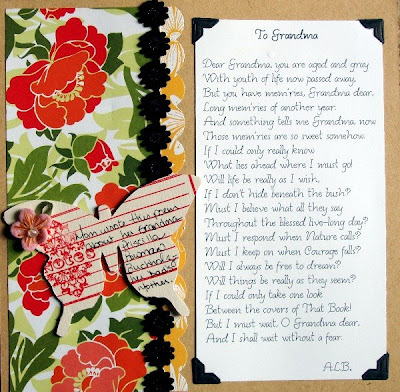 To Grandma
Dear Grandma you are aged and gray
With youth of life now passed away.
But you have mem'ries, Grandma dear,
Long mem'ries of another year.
And something tells me Grandma now
Those mem'ries are so sweet somehow.
If I could only really know
What lies ahead where I must go!
Will life be really as I wish,
If I don't hide beneath the bush?
Must I believe what all they say
Throughout the blessed live-long day?
Must I respond when Nature calls?
Must I keep on when Courage falls?
Will I always be free to dream?
Will things be really as they seem?
If I could only take one look
Between the covers of That Book!
But I must wait, O Grandma dear.
And I shall wait without a fear.
A.L.B.
Mom wrote this poem
about my Grandma
notes
mother